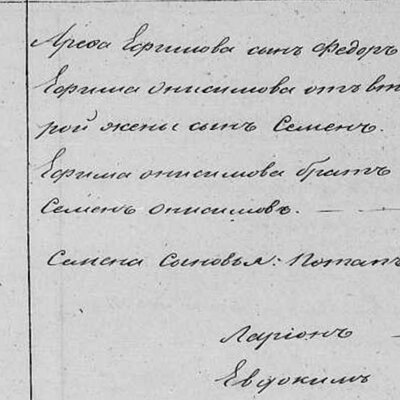 Арефа Ефимова сынъ Федоръ
Ефима Онисимова отъ вто
рой жены сынъ Семенъ.
Ефима Онисимова братъ
Семенъ Онисимовъ. —
Семена Сыновья: Потапъ
Ларіонъ —
Евдокимъ